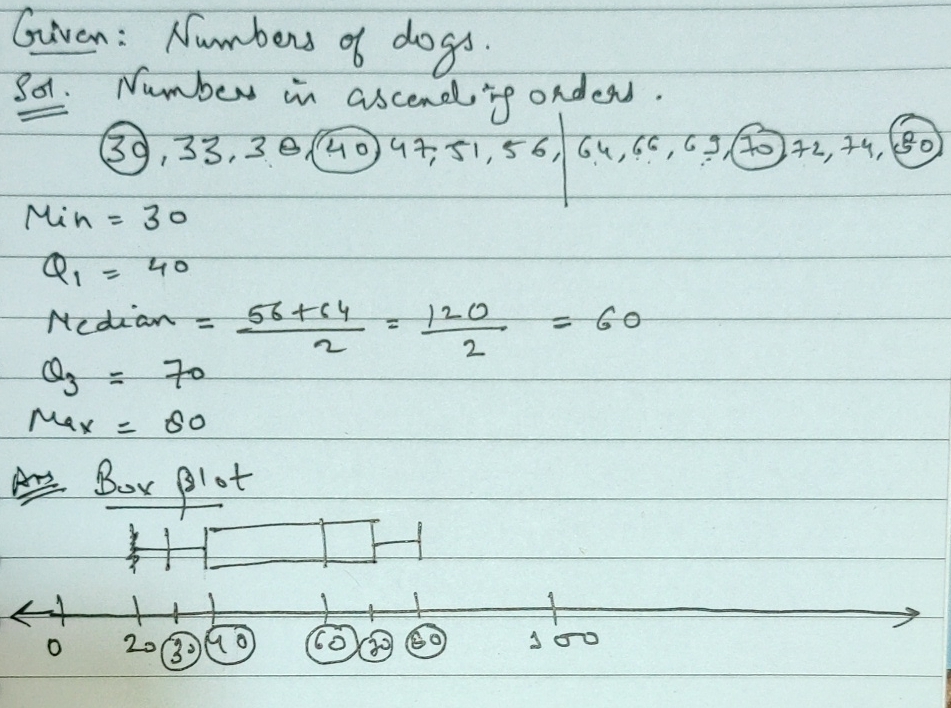 Given: Numbers of dogs.
Sol. Numbers in ascending orders.
30, 33, 38, 40 47, 51, 56, 64, 66, 69, 70, 72, 74, 80
Min = 30
Q₁ = 40
Median = 56+64/2 = 120/2 = 60
Q₃ = 70
Max = 80
Ans Box plot
0 20 30 40 60 70 80 100